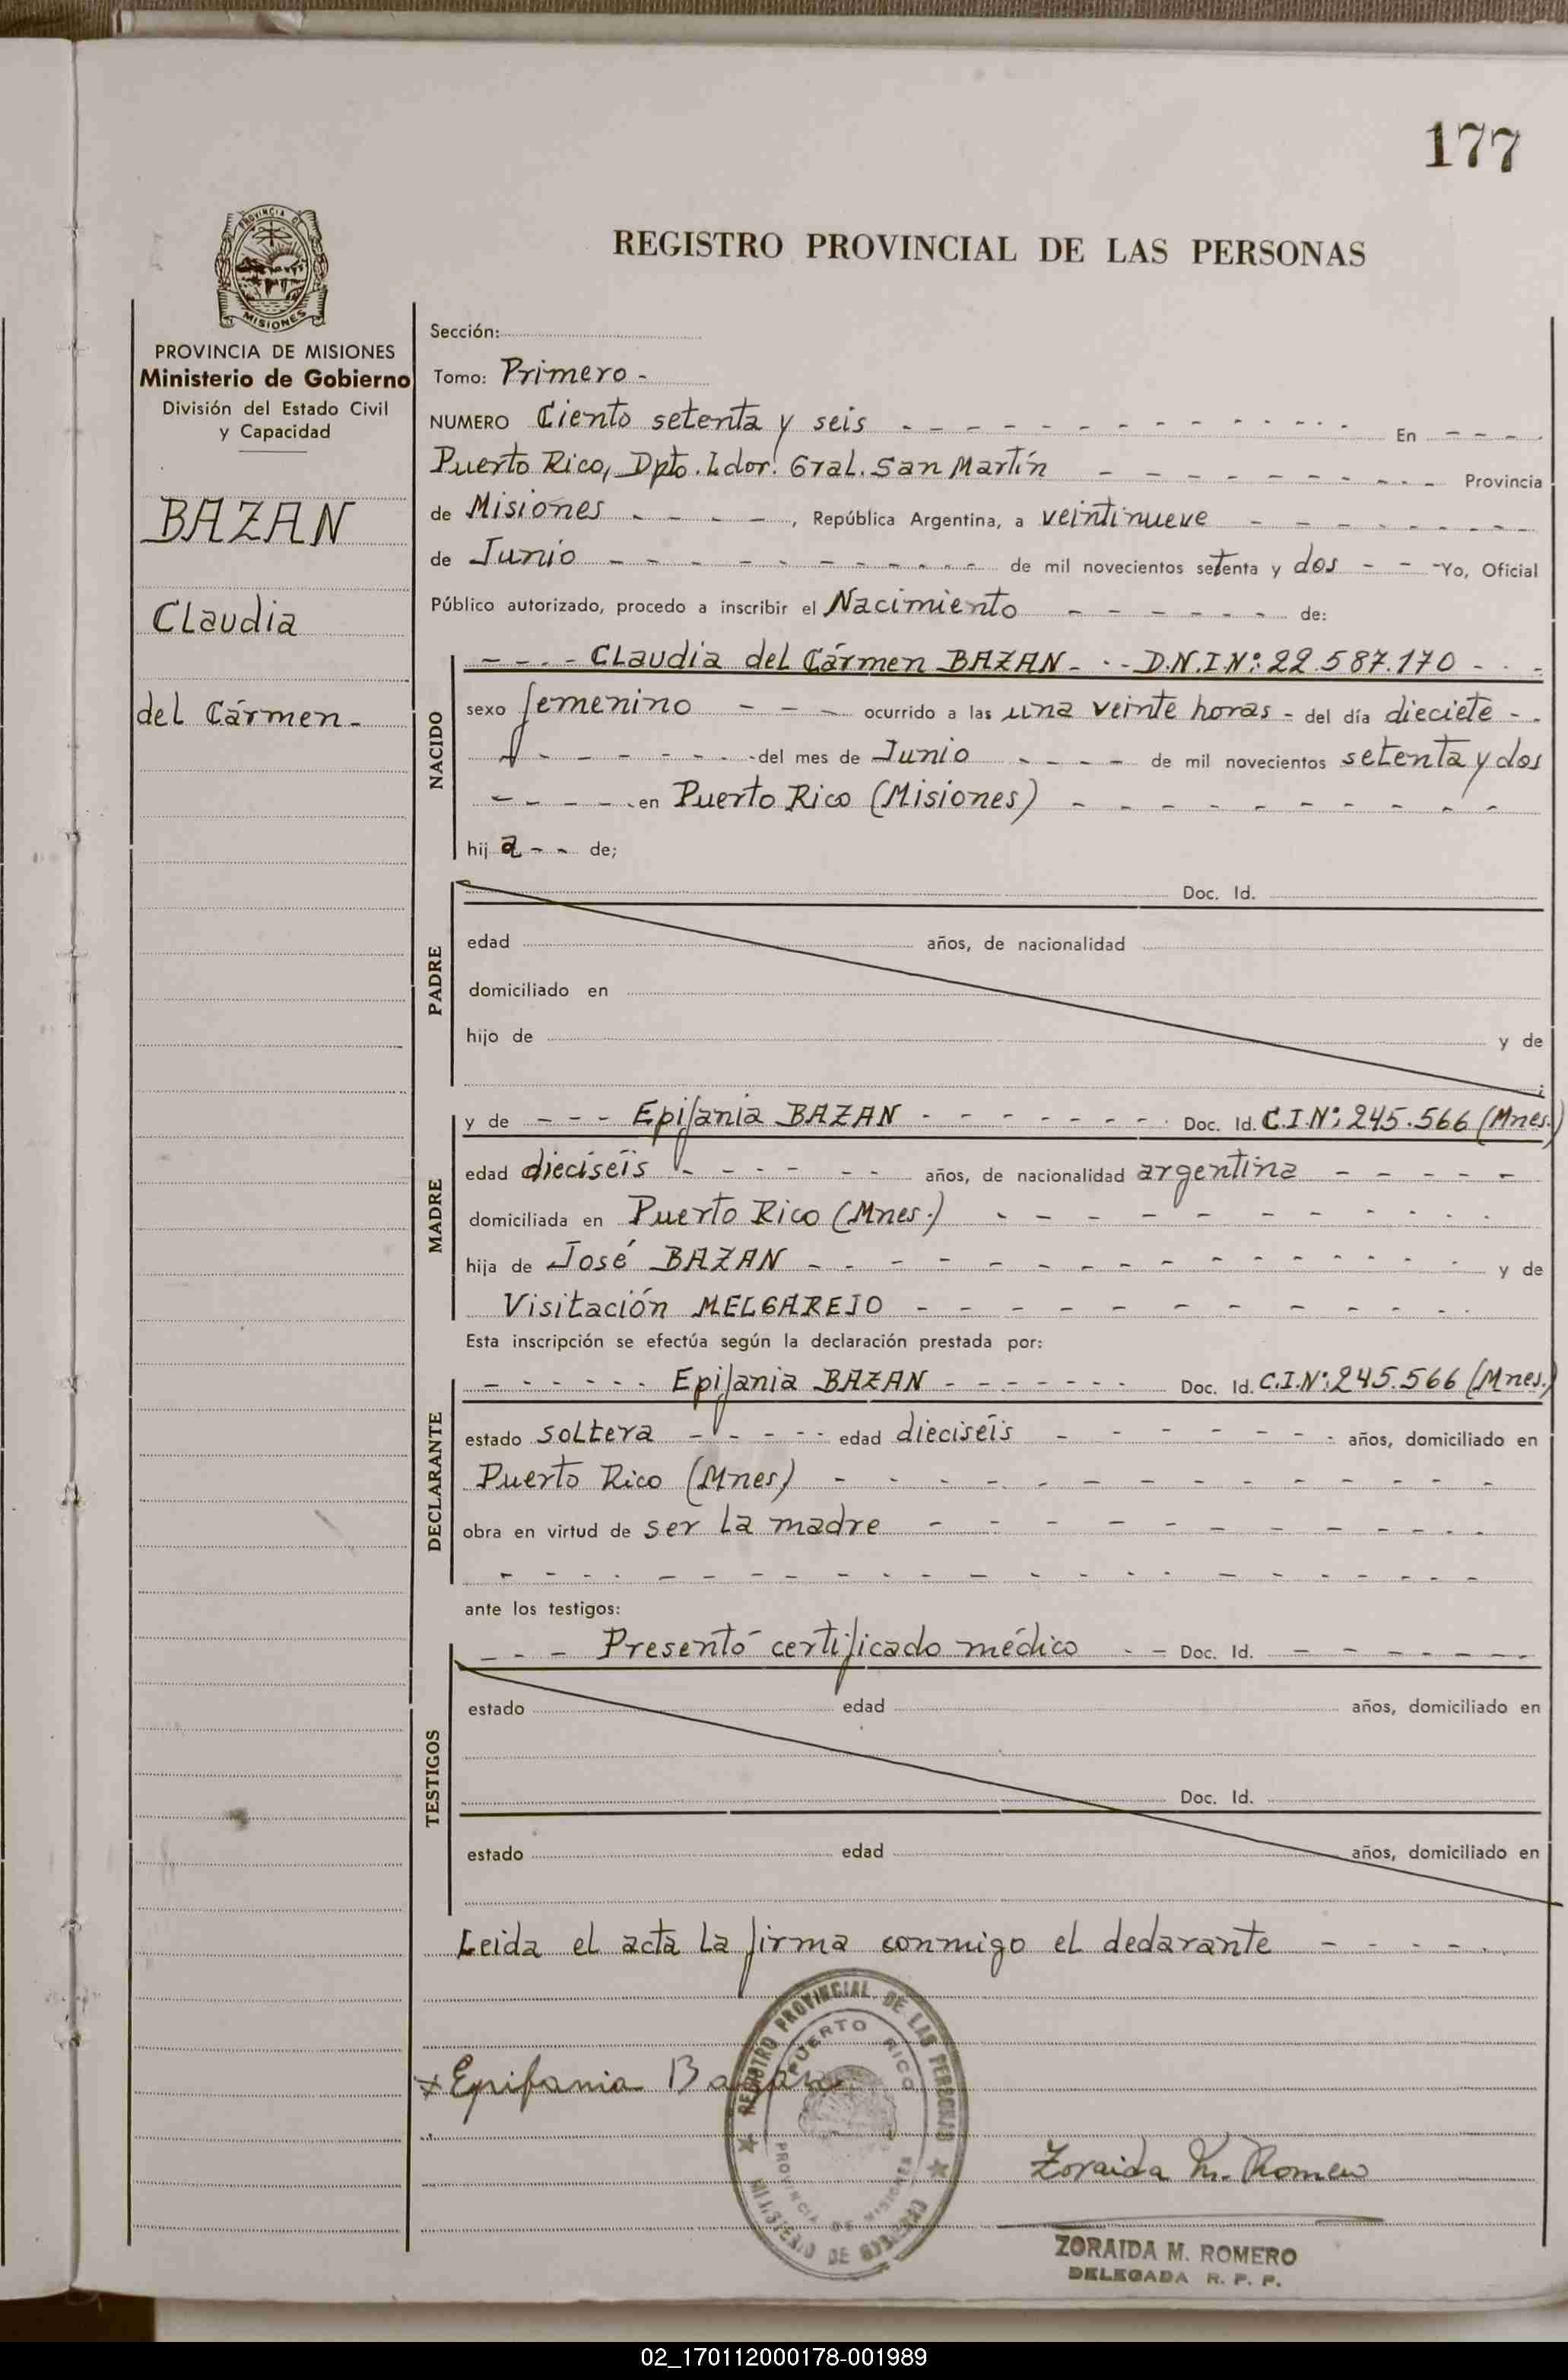 177
PROVINCIA DE
MISIONES
REGISTRO PROVINCIAL DE LAS PERSONAS
PROVINCIA DE MISIONES
Ministerio de Gobierno
División del Estado Civil
y Capacidad
BAZAN
Claudia
del Cármen -
Sección:
Tomo: Primero -
NUMERO Ciento setenta y seis - - - - En - - - -
Puerto Rico, Dpto. Ldor. Gral. San Martín - - - - Provincia
de Misiones - - - -, República Argentina, a veintinueve - - - -
de Junio - - - - de mil novecientos setenta y dos - - - Yo, Oficial
Público autorizado, procedo a inscribir el Nacimiento - - - - de:
NACIDO
- - - - Claudia del Cármen BAZAN - - - D.N.I.Nº: 22.587.170 - - -
sexo femenino - - - ocurrido a las una veinte horas - del día dieciete - -
- - - - del mes de Junio - - - - de mil novecientos setenta y dos
- - - - en Puerto Rico (Misiones) - - - -
hij a - - de;
PADRE
Doc. Id.
edad años, de nacionalidad
domiciliado en
hijo de y de
;
MADRE
y de - - - Epifania BAZAN - - - - Doc. Id. C.I.Nº: 245.566 (Mnes.)
edad dieciseis - - - - años, de nacionalidad argentina - - - -
domiciliada en Puerto Rico (Mnes.) - - - -
hija de José BAZAN - - - - y de
Visitación MELGAREJO - - - -
Esta inscripción se efectúa según la declaración prestada por:
DECLARANTE
- - - - Epifania BAZAN - - - - Doc. Id. C.I.Nº: 245.566 (Mnes.)
estado soltera - - - - edad dieciseis - - - - años, domiciliado en
Puerto Rico (Mnes) - - - -
obra en virtud de ser la madre - - - -
- - - -
ante los testigos:
TESTIGOS
- - - Presentó certificado médico - - Doc. Id. - - - -
estado edad años, domiciliado en
Doc. Id.
estado edad años, domiciliado en
Leida el acta la firma conmigo el declarante - - - -
REGISTRO PROVINCIAL DE LAS PERSONAS
PUERTO RICO
PROVINCIA DE MISIONES
MINISTERIO DE GOBIERNO
x Epifania Bazan
Zoraida M. Romero
ZORAIDA M. ROMERO
DELEGADA R. P. P.
02_170112000178-001989